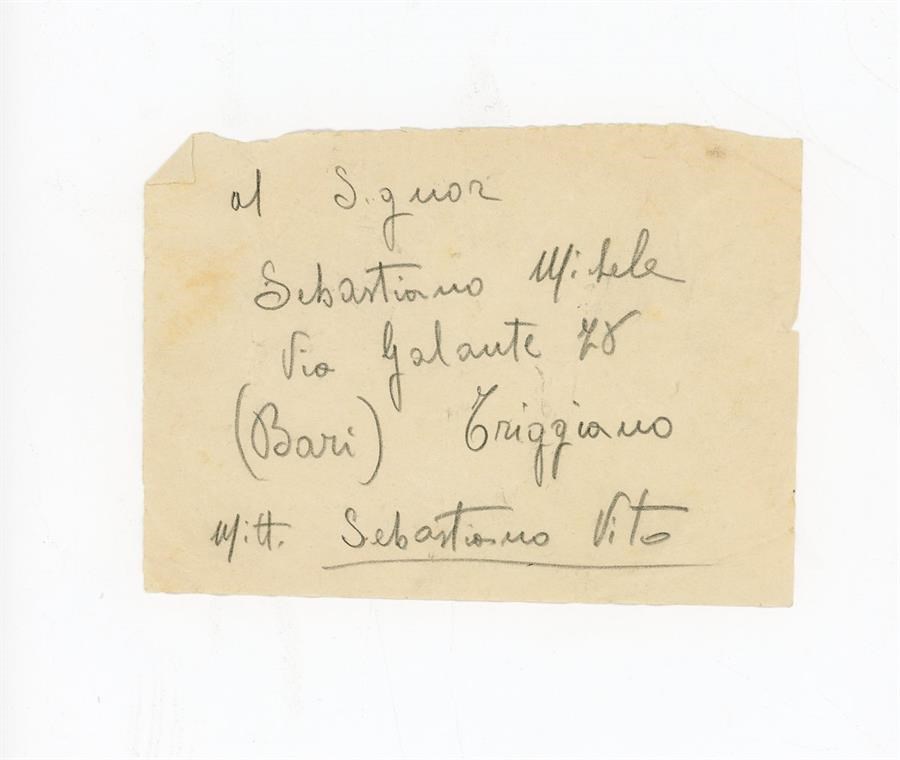 al Signor
Sebastiano Michele
Via Galante 78
(Bari) Triggiano
Mitt. Sebastiano Vito